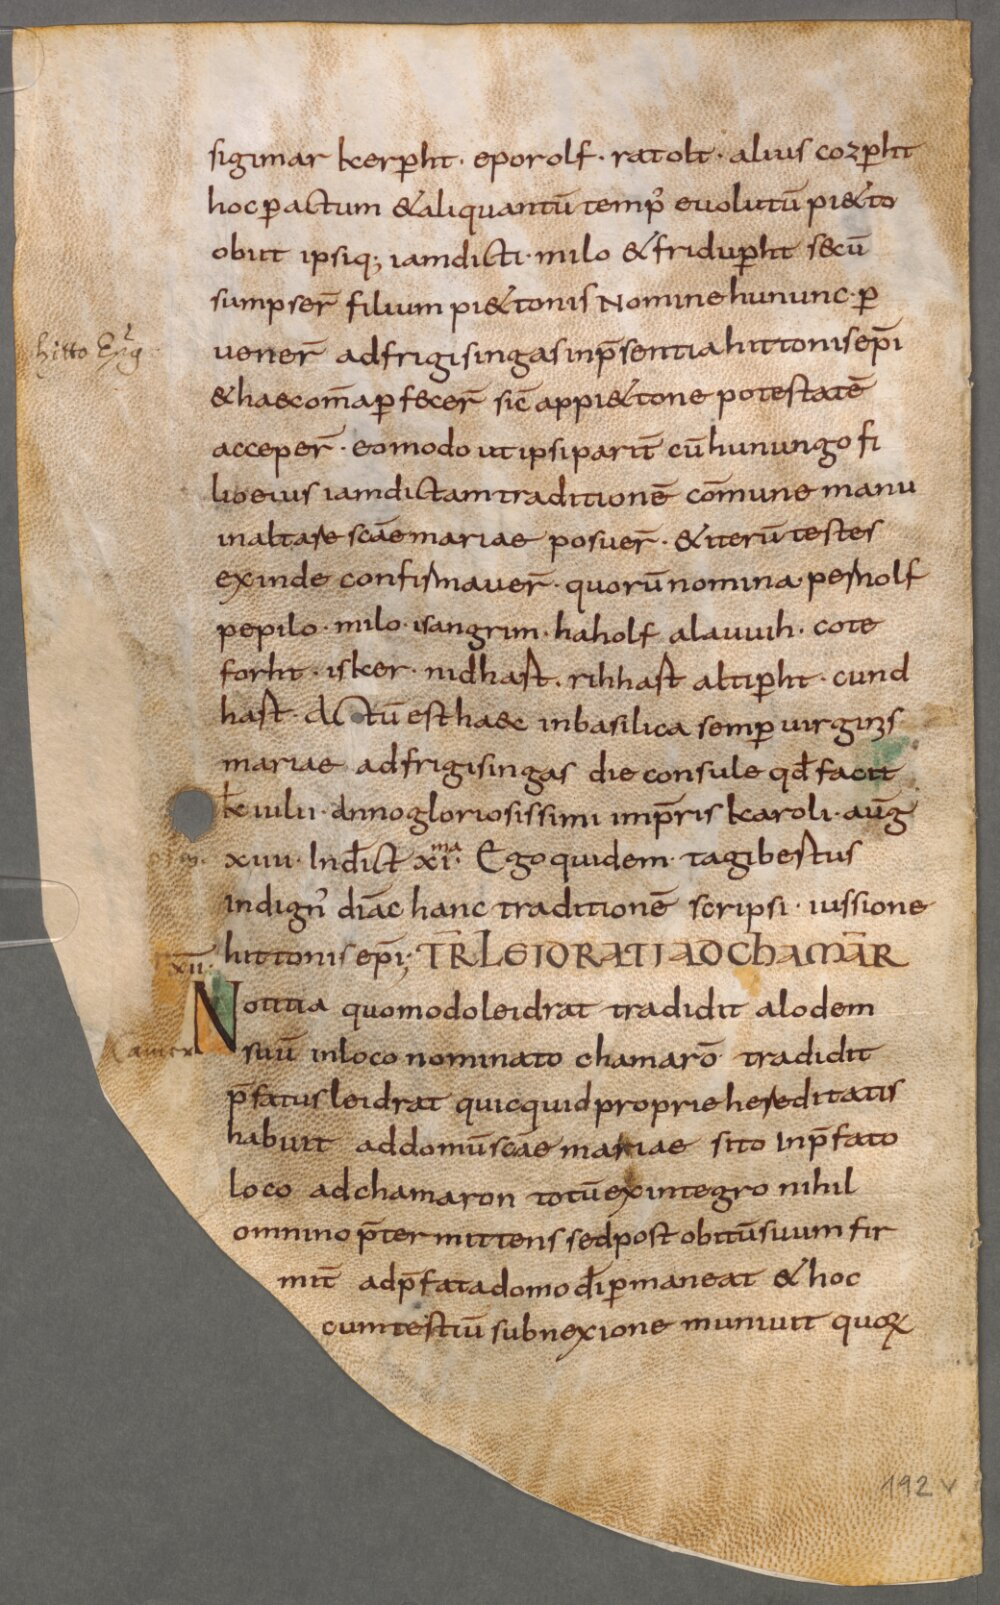 sigimar kerp̄ht · eporolf · ratolt · alius cozp̄ht
hoc p̄actum &aliquantū temp̉ euolutū pi&to
obiit ipsiq; iamdicti · milo & fridup̄ht secū
sumpser̄ filium pi&tonis Nomine hununc · p̄
hitto Ep̄s
uener̄ adfrigisingas inp̄sentia hittonis ep̄i
& haec om̄a p̄f&cer̄ sic̄ appi&tone potestatē
acceper̄ · eomodo ut ipsi parit̄ cū hunungo fi
lio eius iamdictam traditionē cōmune manu
in altare sc̄ae mariae posuer̄ · & iterū testes
exinde confirmauer̄ · quorū nomina · pernolf
pepilo · milo · isangrim · haholf alauuih · cote
forht · isker · nidhast · rihhast altip̄ht · cund
hast · Actū est haec in basilica semp̄ uirginis
mariae ad frigisingas die consule qd̄ facit
k̄ iulii · Anno gloriosissimi imp̄ris karoli · aūg
xiiii · Indict xi.ma Ego quidem · tagibertus
indign̉ diāc hanc traditionē scripsi · iussione
hittonis ep̄i; TR̄ LEIDRATI AD CHAMAR̄
xii·
Notitia quomodo leidrat tradidit alodem
suū in loco nominato chamarō tradidit
p̄fatus leidrat quicquid proprie hereditatis
habuit ad domū sc̄ae mariae sito In p̄fato
loco ad chamaron totū ex integro nihil
omnino p̄ter mittens sed post obitū suum fir
mit̄ ad p̄fata domo dī p̄maneat & hoc
cum testiū subnexione muniuit quoꝝ
192 v